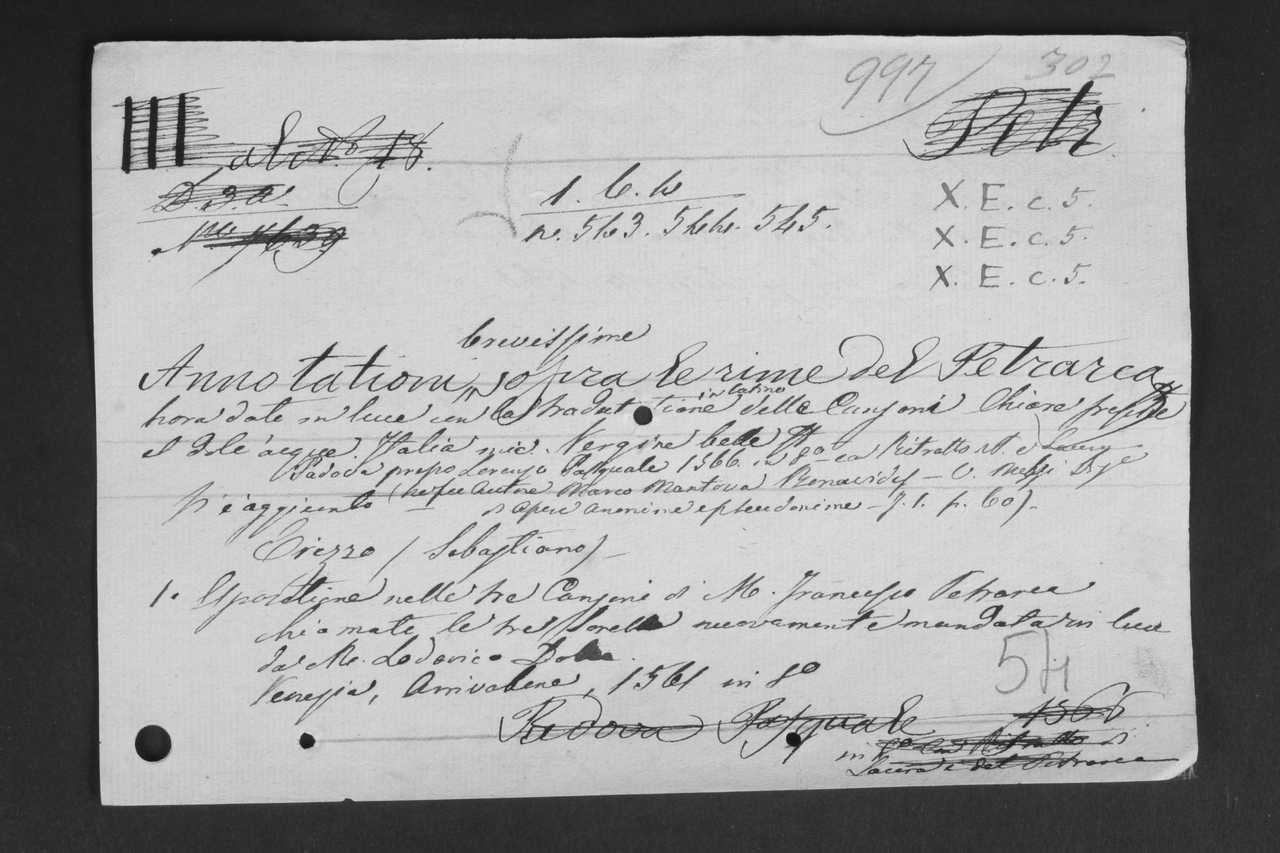 997 302
Petr
X. E. c. 5.
n. 543. 544. 545.
X. E. c. 5.
X. E. c. 5.
brevissime
Annotationi sopra le rime del Petrarca
in latino
hora date in luce con la traduttione delle Canzoni Chiare fresche
e dolci acque. Italia mia. Vergine bella
Padova presso Lorenzo Pasquale 1566. in 8o con Ritratto
autore Marco Mantova Benavides - V. Melzi
opere anonime e pseudonime - T. 1. p. 60).
Erizzo (Sebastiano)
1. Espositione nelle tre Canzoni di M. Francesco Petrarca
chiamate le tre sorelle nuovamente mandata in luce
da M. Lodovico Dolce.
Venezia, Arrivabene, 1561 in 8o
54
Padova Pasquale 1566
in 8o con Ritratto di
Laura e del Petrarca